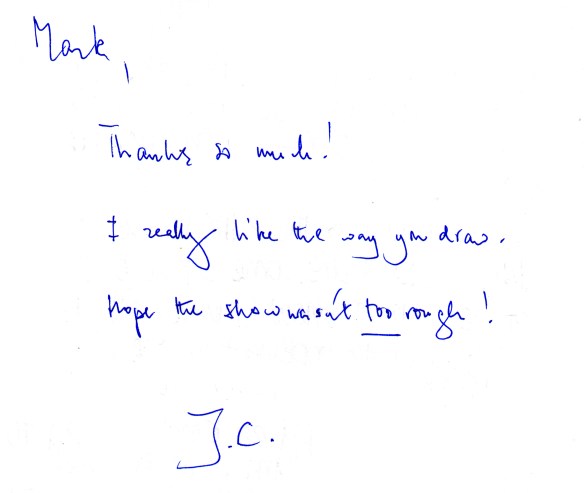 Mark,
Thanks so much!
I really like the way you draw.
Hope the show wasn't too rough!
J.C.